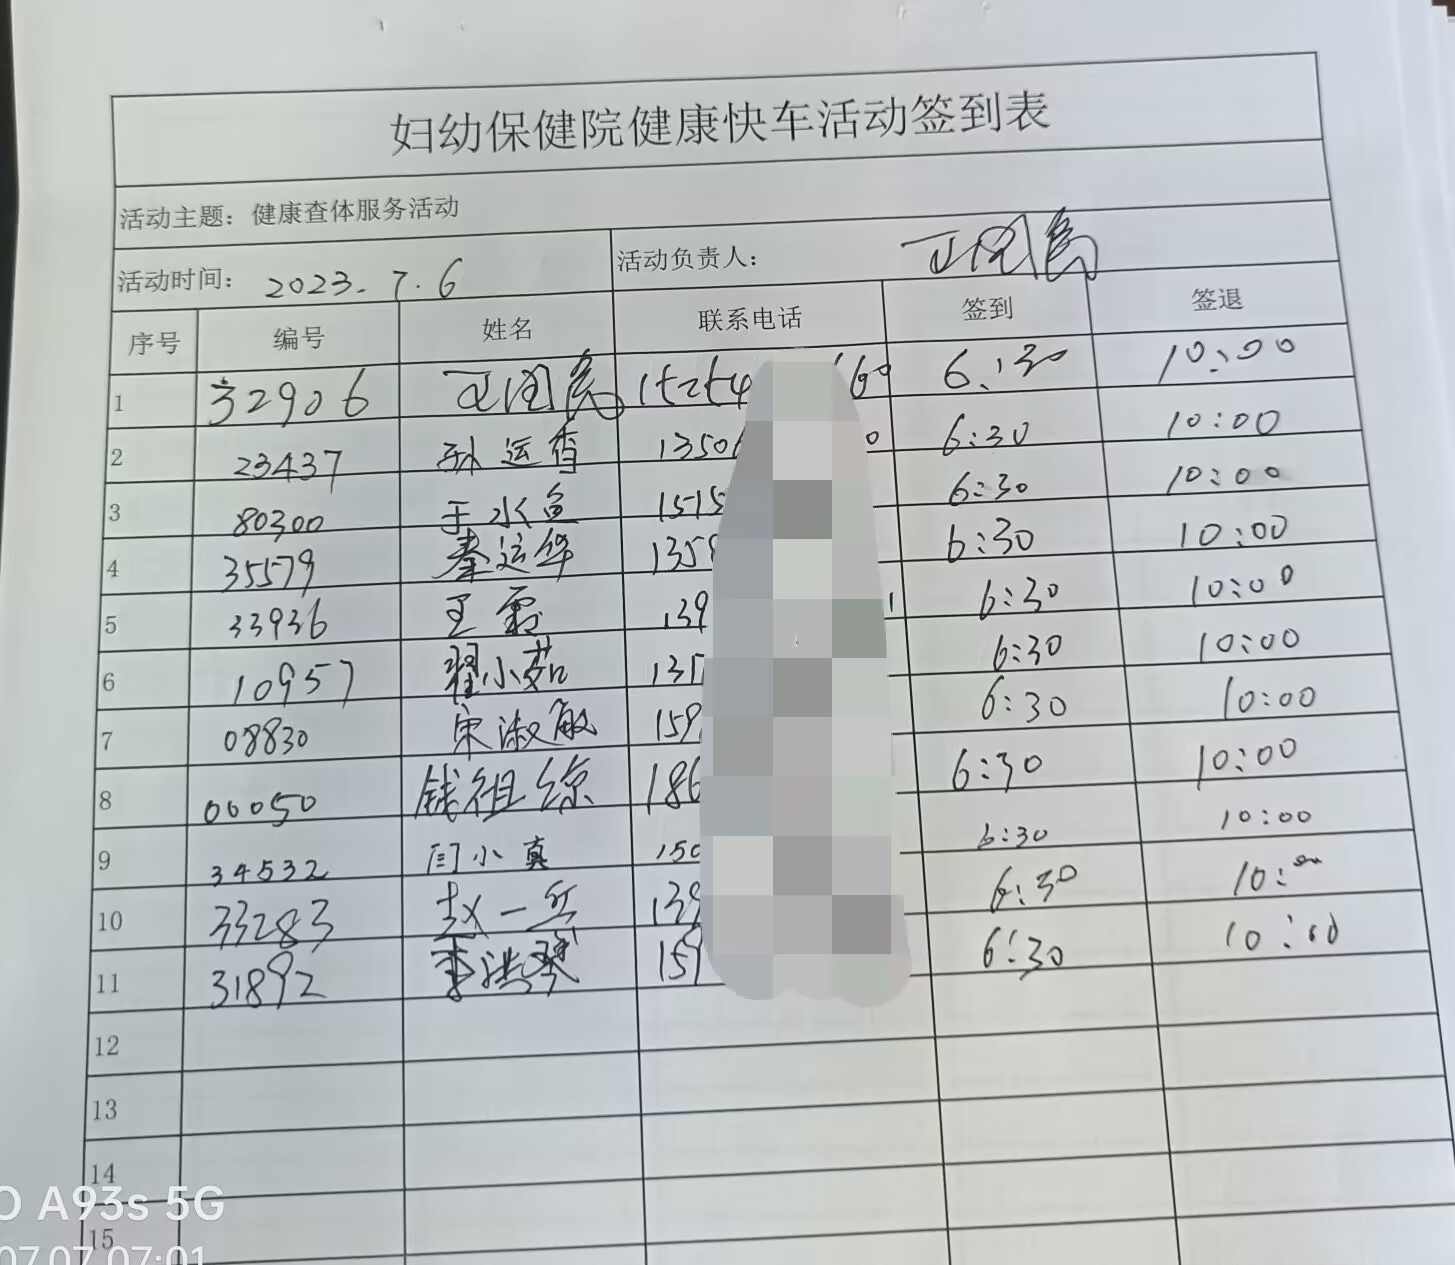 妇幼保健院健康快车活动签到表
活动主题：健康查体服务活动
活动时间： 2023.7.6 活动负责人：
序号 编号 姓名 联系电话 签到 签退
1 32906 6:30 10:00
2 23437 孙运香 1350 0 6:30 10:00
3 80300 于水鱼 1515 6:30 10:00
4 35579 秦运华 135 6:30 10:00
5 33936 王霞 139 1 6:30 10:00
6 10957 翟小茹 131 6:30 10:00
7 08830 宋淑敏 159 6:30 10:00
8 00050 钱祖琼 186 6:30 10:00
9 34532 闫小真 150 6:30 10:00
10 33283 赵一 139 6:30 10:00
11 31892 李洪琴 159 6:30 10:00
12
13
14
15
A93s 5G
07.07 07:01